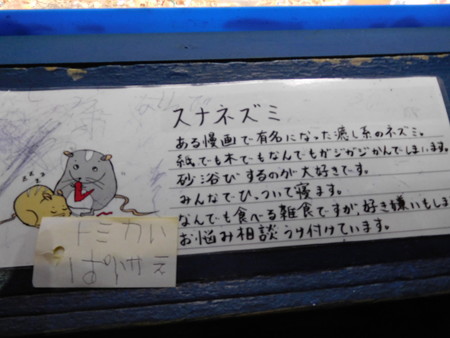 スナネズミ
ある漫画で有名になった癒し系のネズミ。
紙でも木でもなんでもガジガジかんでしまいます。
砂浴びするのが大好きです。
みんなでひっついて寝ます。
なんでも食べる雑食ですが、好き嫌いもしま
お悩み相談うけ付けています。
zzz